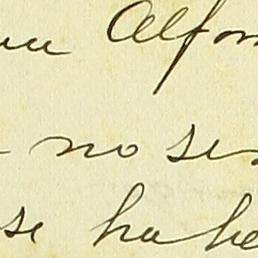 Alfon
no se
se habe